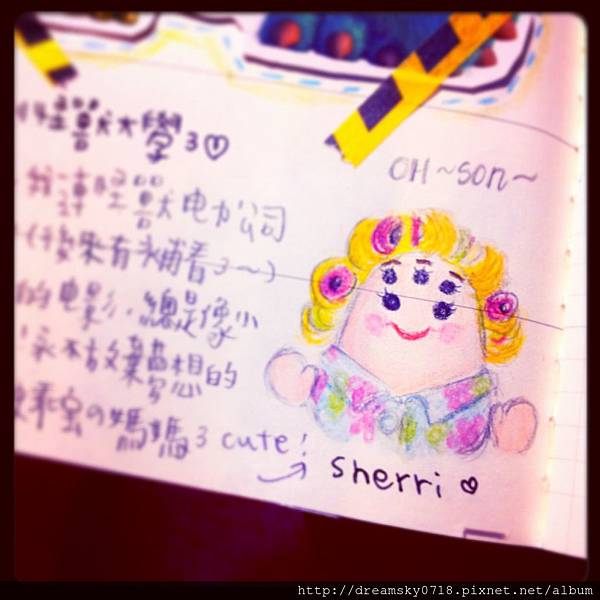 怪獸大學3♡
OH~SON~
我連怪獸电力公司
(後來有補看3~)
的电影,總是像小
永不放棄夢想的
乖虫の媽媽3 cute!
Sherri ♡
http://dreamsky0718.pixnet.net/album